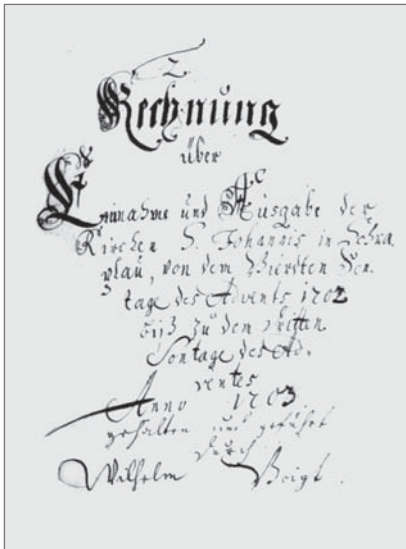 2
Rechnung
über
Einnahme und Ausgabe der
Kirchen S. Johannis in Schra
plau, von dem Vierdten Son-
tage des Advents 1702
biß zu dem dritten
Sontage des Ad-
ventes
Anno 1703
gehalten und geführt
durch
Wilhelm Voigt.